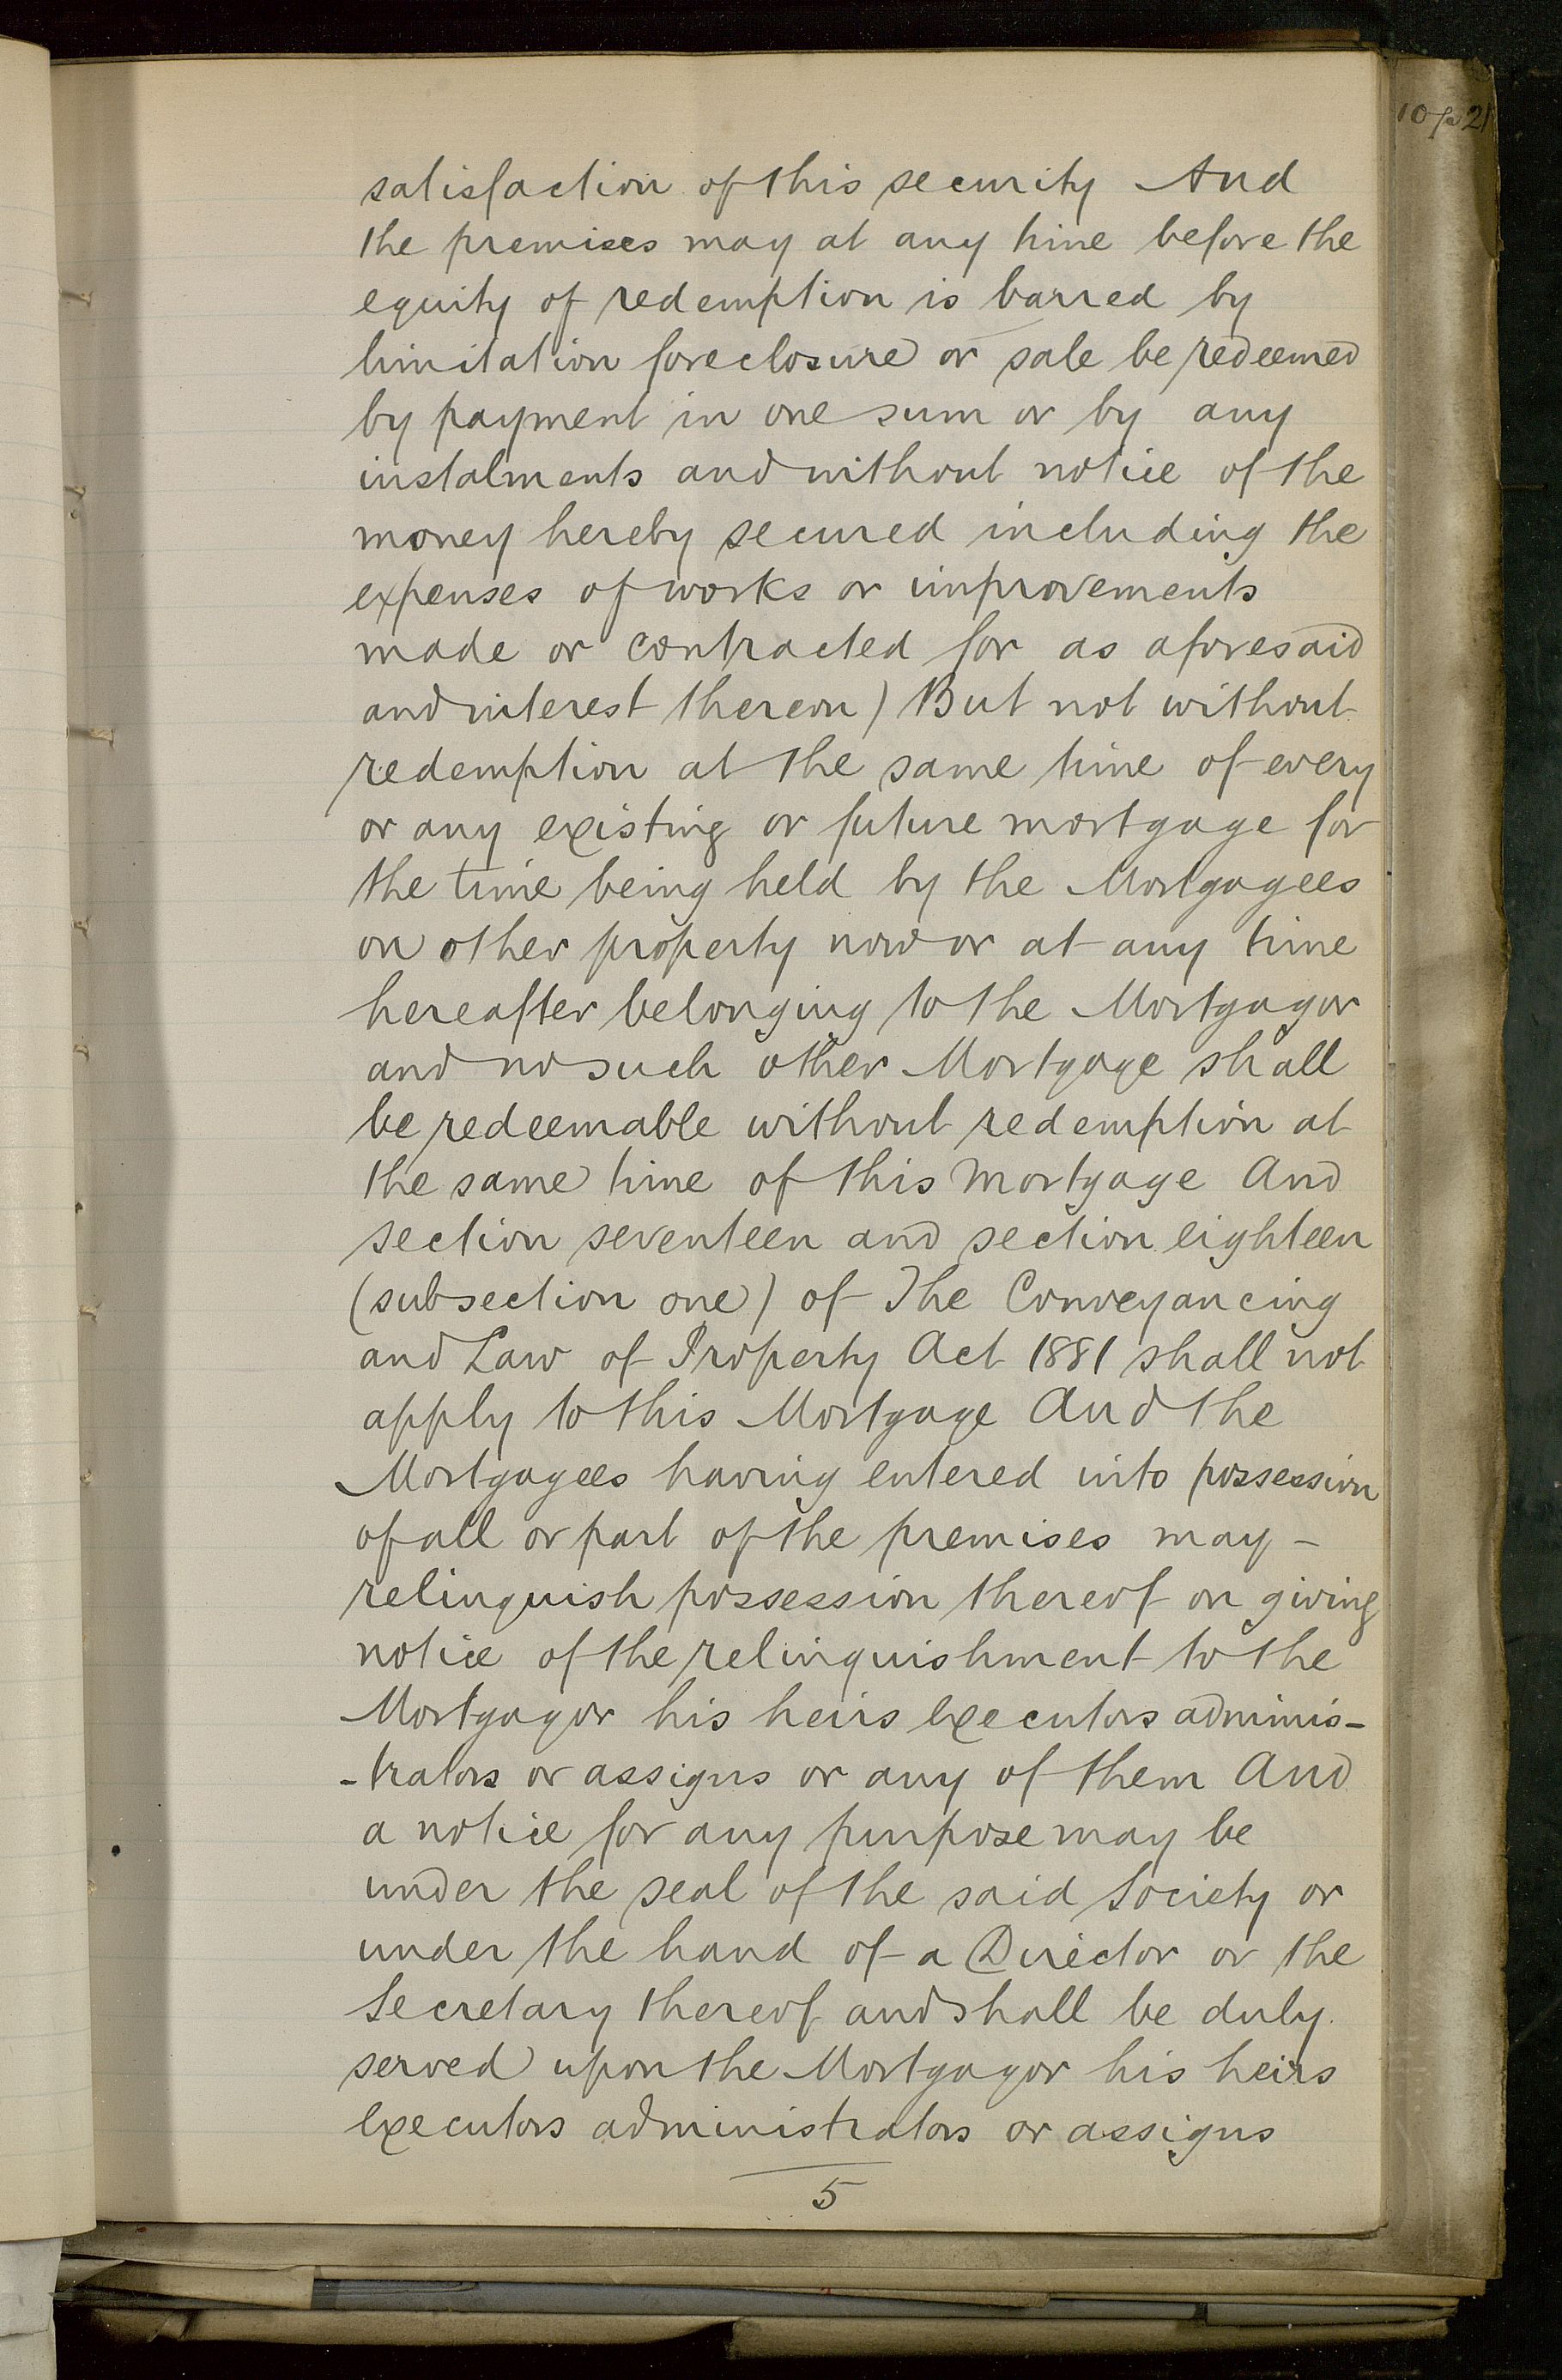 satisfaction of this security And
the premises may at any time before the
equity of redemption is barred by
limitation foreclosure or sale be redeemed
by payment in one sum or by any
instalments and without notice of the
money hereby secured including the
expenses of works or improvements
made or contracted for as aforesaid
and interest thereon) But not without
redemption at the same time of every
or any existing or future mortgage for
the time being held by the Mortgagees
on other property now or at any time
hereafter belonging to the Mortgagor
and no such other Mortgage shall
be redeemable without redemption at
the same time of this Mortgage And
section seventeen and section eighteen
(subsection one) of The Conveyancing
and Law of Property Act 1881 shall not
apply to this Mortgage And the
Mortgagees having entered into possession
of all or part of the premises may -
relinquish possession thereof on giving
notice of the relinquishment to the
Mortgagor his heirs executors adminis-
-trators or assigns or any of them And
a notice for any purpose may be
under the seal of the said Society or
under the hand of a Director or the
Secretary thereof and shall be duly
served upon the Mortgagor his heirs
executors administrators or assigns
5